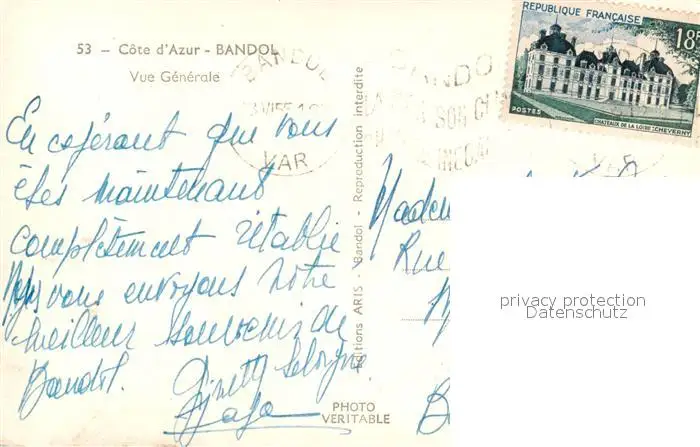 53 — Côte d'Azur - BANDOL
Vue Générale
REPUBLIQUE FRANÇAISE
18F
POSTES
CHATEAUX DE LA LOIRE : CHEVERNY
BANDOL
VAR
BANDOL
SON
VAR
En espérant que vous
êtes maintenant
complètement rétablie
Nous vous envoyons notre
meilleur souvenir de
Bandol.
Editions ARIS - Bandol - Reproduction interdite
PHOTO
VERITABLE
Rue
privacy protection
Datenschutz